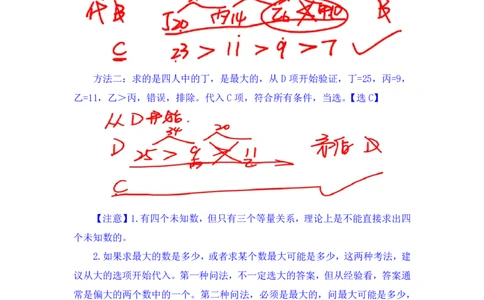 代B 丁20 丙14 乙6 B
C 23 > 11 > 9 > 7 ✓
方法二：求的是四人中的丁，是最大的，从 D 项开始验证，丁=25，丙=9，
乙=11，乙＞丙，错误，排除。代入 C 项，符合所有条件，当选。【选 C】
从D开始.
34 20
D 25 > 9 > 11 矛盾 D
丙 乙
C
【注意】1.有四个未知数，但只有三个等量关系，理论上是不能直接求出四
个未知数的。
2.如果求最大的数是多少，或者求某个数最大可能是多少，这两种考法，建
议从大的选项开始代入。第一种问法，不一定选大的答案，但从经验看，答案通
常是偏大的两个数中的一个。第二种问法，必须是最大的，问最大可能是多少，